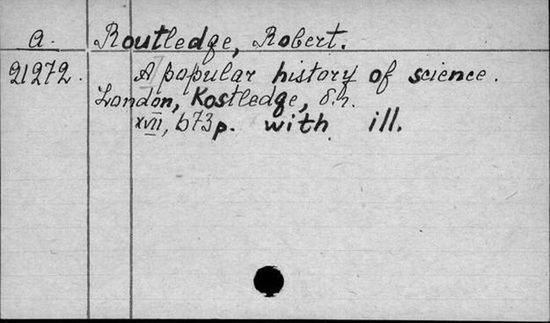 a. Routledge, Robert.
21272. A popular history of science.
London, Kostledge, s.h.
XVII, 673 p. with ill.